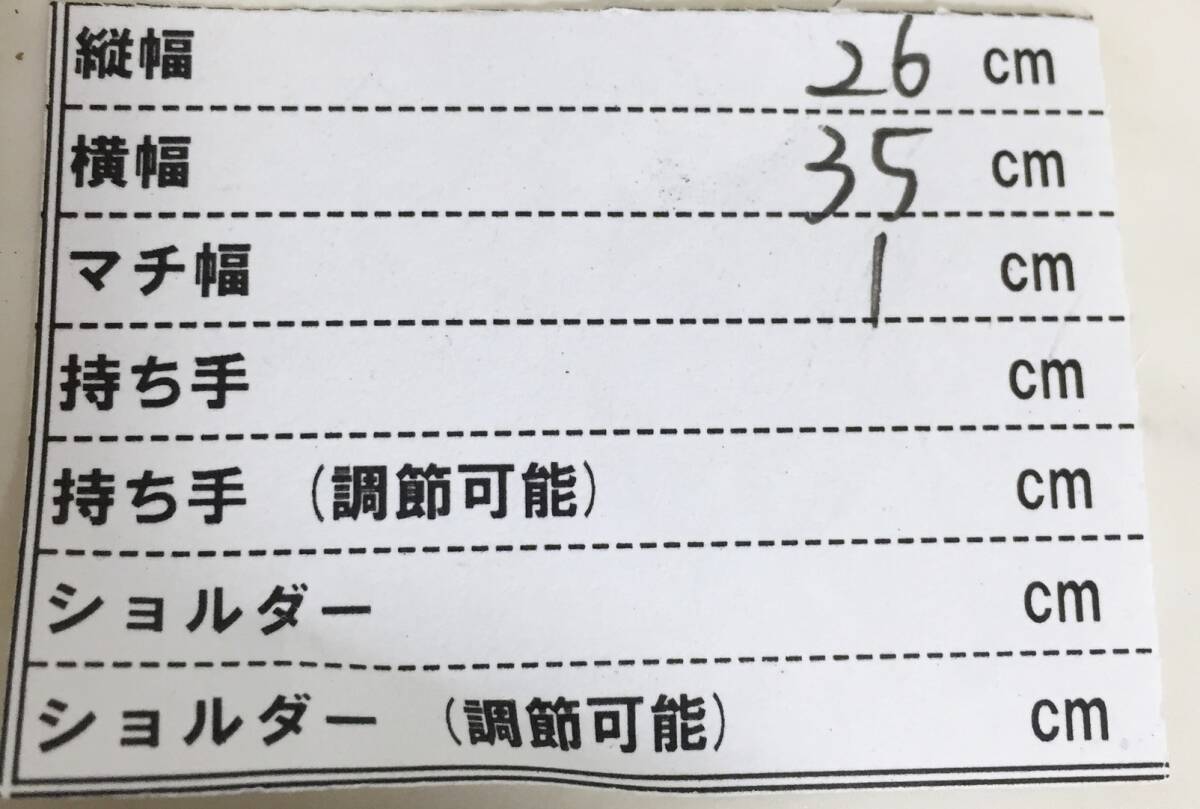 縦幅 26 cm
横幅 35 cm
マチ幅 1 cm
持ち手 cm
持ち手 (調節可能) cm
ショルダー cm
ショルダー (調節可能) cm